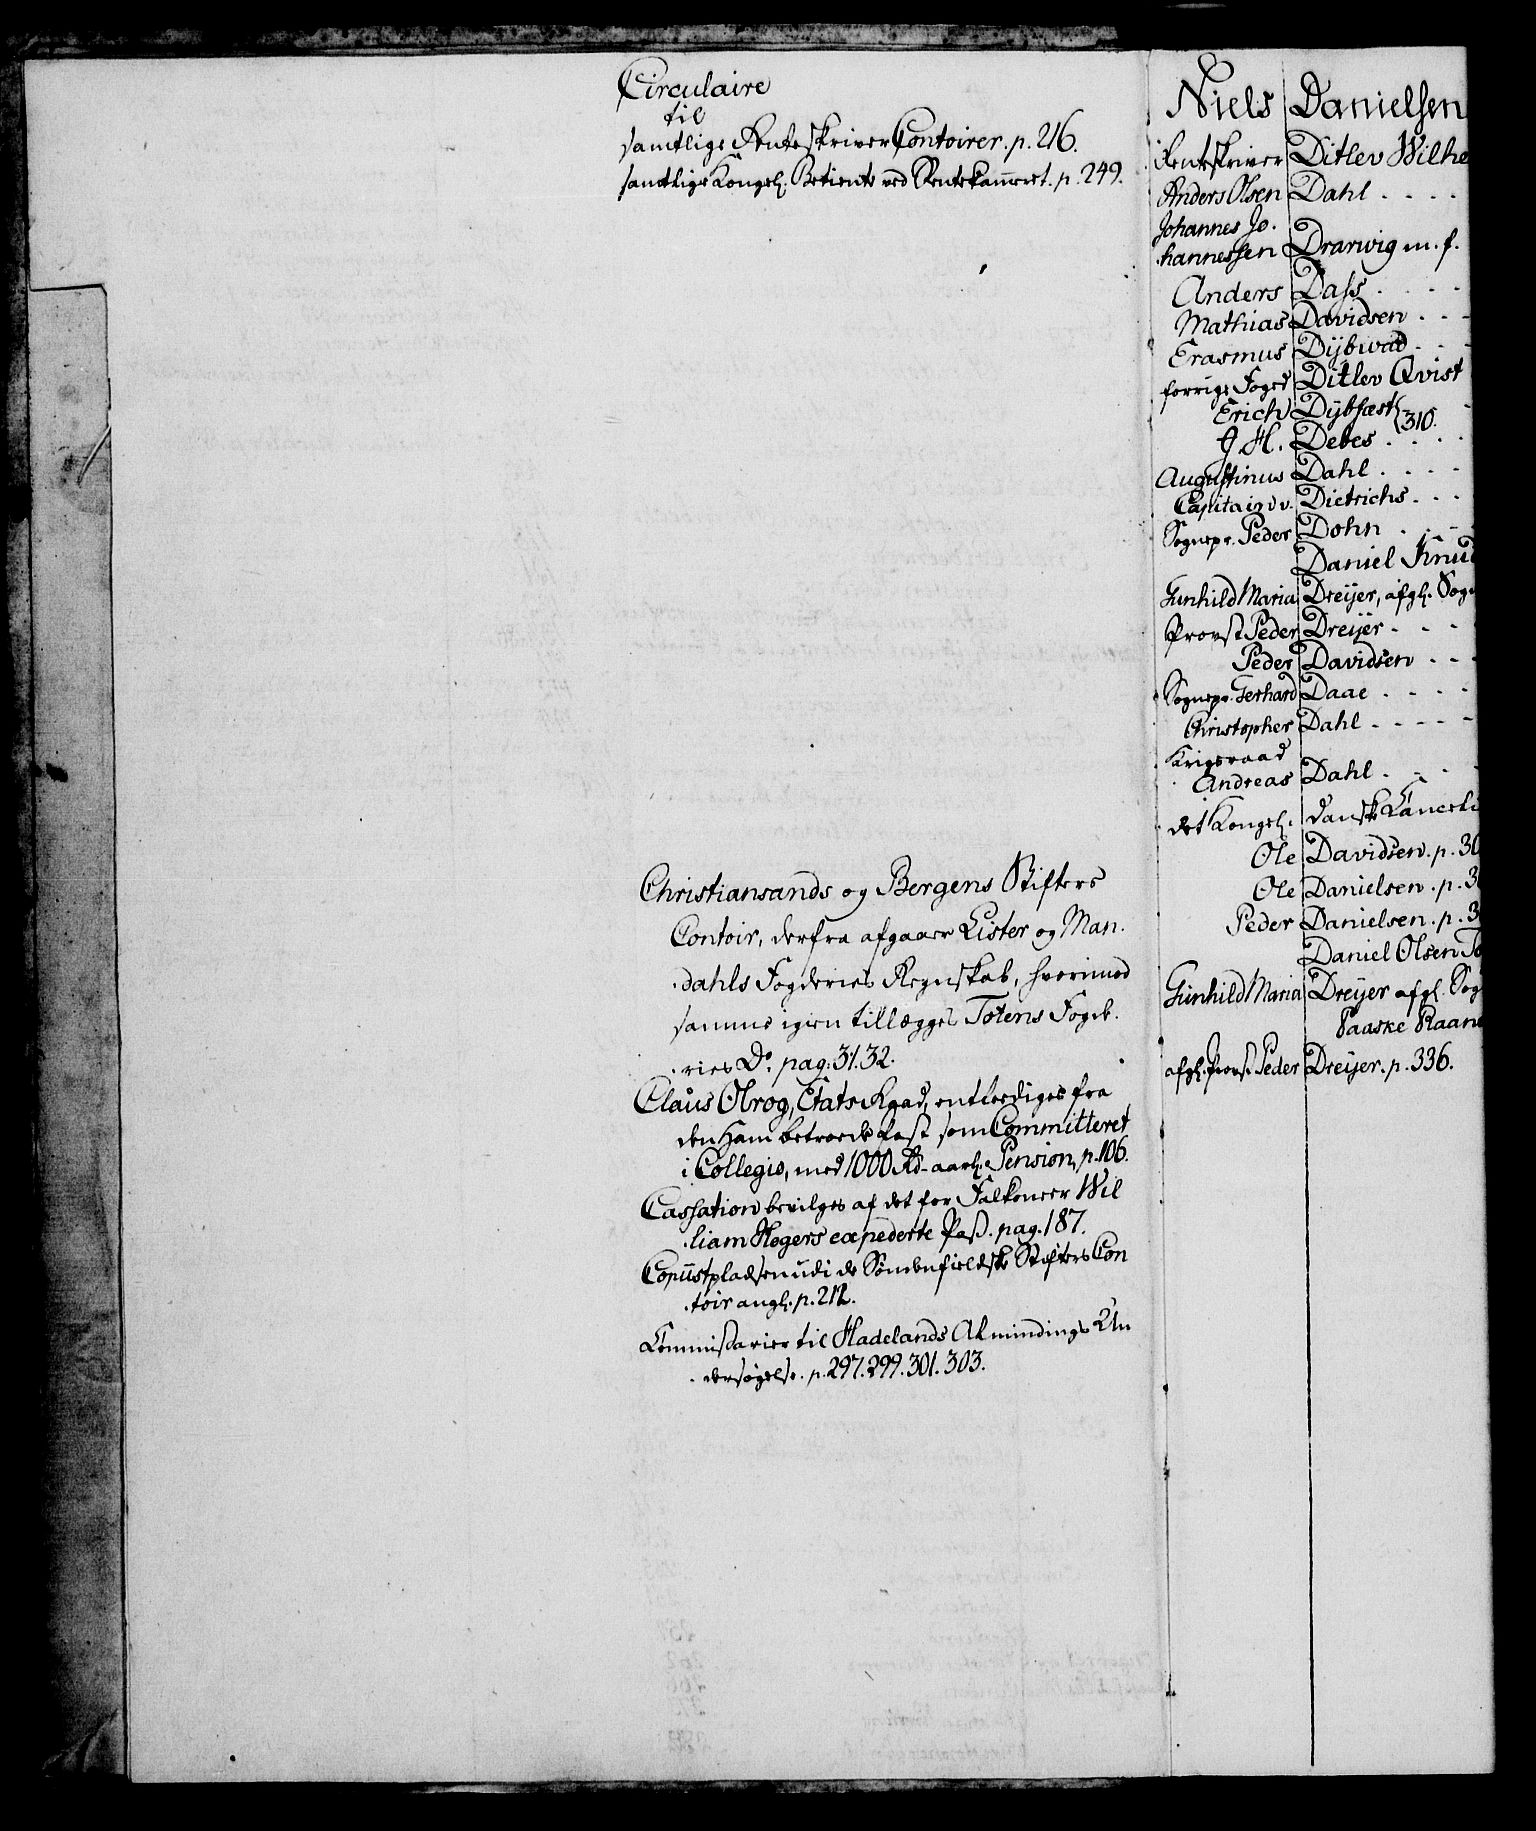 Circulaire
til
samtlige RenteskriverContoirer. p. 216.
samtlige Kongel. Betiente ved Rentekameret. p. 249.
Christiansands og Bergens Stifters
Contoir, derfra afgaaer Lister og Man-
dahls Fogderies Regnskab, hvorimod
samme igien tillægges Totens Fogde-
ries Do. pag. 31.32.
Claus Olrog, Etats Raad, entlediges fra
den Ham betroede Post som Committeret
i Collegio, med 1000 Rd. aarl. Pension, p. 106.
Cassation bevilges af det for Falkoneer Wil
liam Rogers expederte Pass. pag. 187.
Copiistpladsen udi de Söndenfieldske Stifters Con
toir angl. p. 212.
Commissarier til Hadelands Almindings Un
dersögelse. p. 297.299.301.303.
Niels Danielsen
Renteskriver Ditlev Wilhe
Anders Olsen Dahl . . . .
Johannes Jo-
hannessen Drarwig m. f.
Anders Dass . . . .
Mathias Davidsen . . .
Erasmus Dybwad . . .
forrige Foged Ditlev Qvist
Erich Dybfæst 310.
J. H. Debes . . . .
Augustinus Dahl . . . .
Capitain v. Dietrichs . . .
Sognepr. Peder Dohn . . . .
Daniel Knud
Gunhild Maria Dreyer, afgl. Sog
Provst Peder Dreyer . . . .
Peder Davidsen . . .
Sognepr. Gerhard Daae . . . .
Christopher Dahl . . . . .
Krigsraad
Andreas Dahl . . . .
det Kongel. danske Cancelli
Ole Davidsen. p. 30
Ole Danielsen. p. 3
Peder Danielsen. p. 3
Daniel Olsen
Gunhild Maria Dreyer afgl. Sog
Paaske Raan
afgl. Provst Peder Dreyer. p. 336.